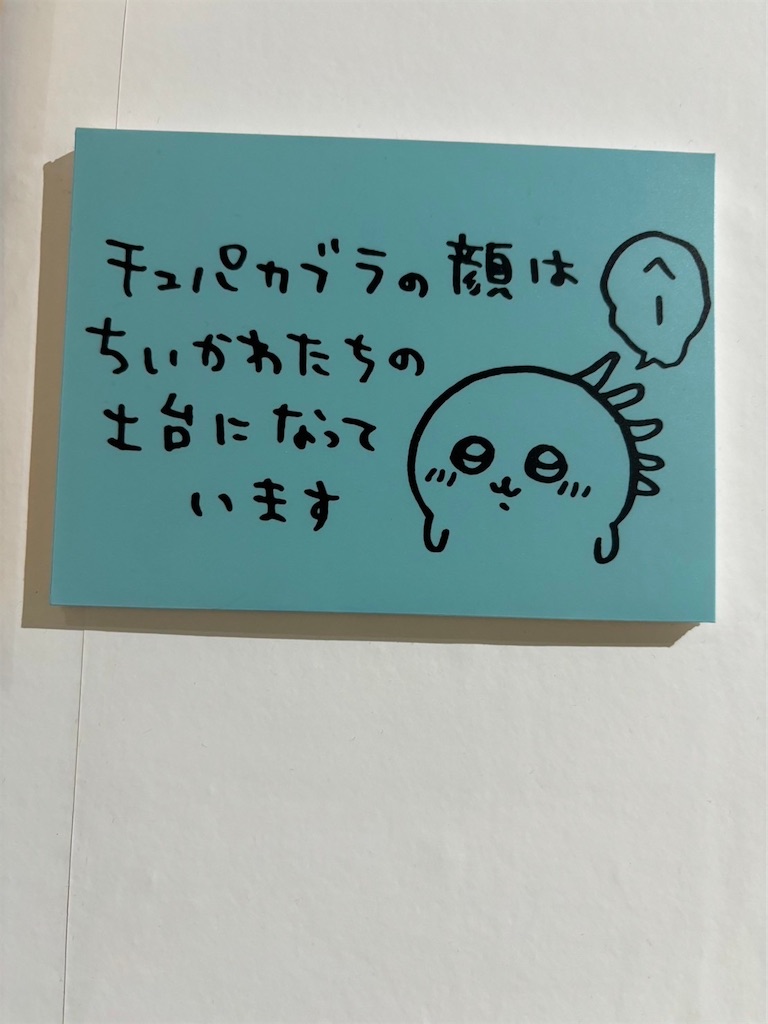 チュパカブラの顔は
ちいかわたちの
土台になって
います
へー